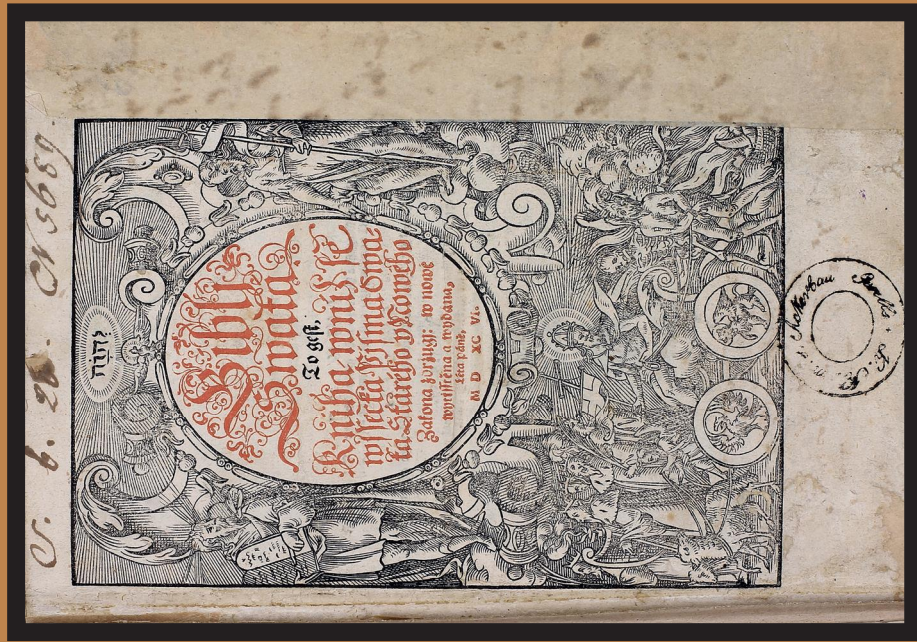 יְהֹוָה
Biblij
Swatá.
To gest,
Kniha w níž se
wssecka Pjsma Swa-
tá Starého y Nowého
Zákona zdržugj: w nowě
wytisstěná a wydaná,
Léta Páně
M D XC VI.